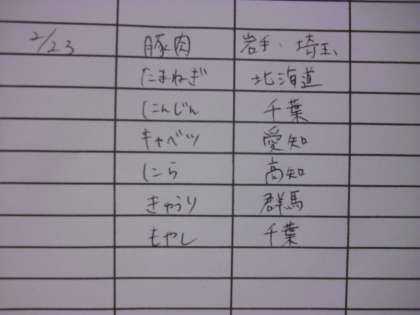 2/23 豚肉 岩手・埼玉
たまねぎ 北海道
にんじん 千葉
キャベツ 愛知
にら 高知
きゅうり 群馬
もやし 千葉